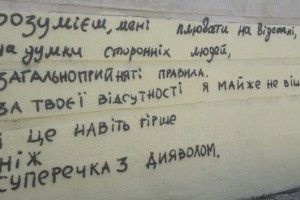 розумієш, мені плювати на відстані,
на думки сторонніх людей,
загальноприйняті правила.
за твоєї відсутності я майже не
і це навіть гірше
ніж
суперечка з дияволом.